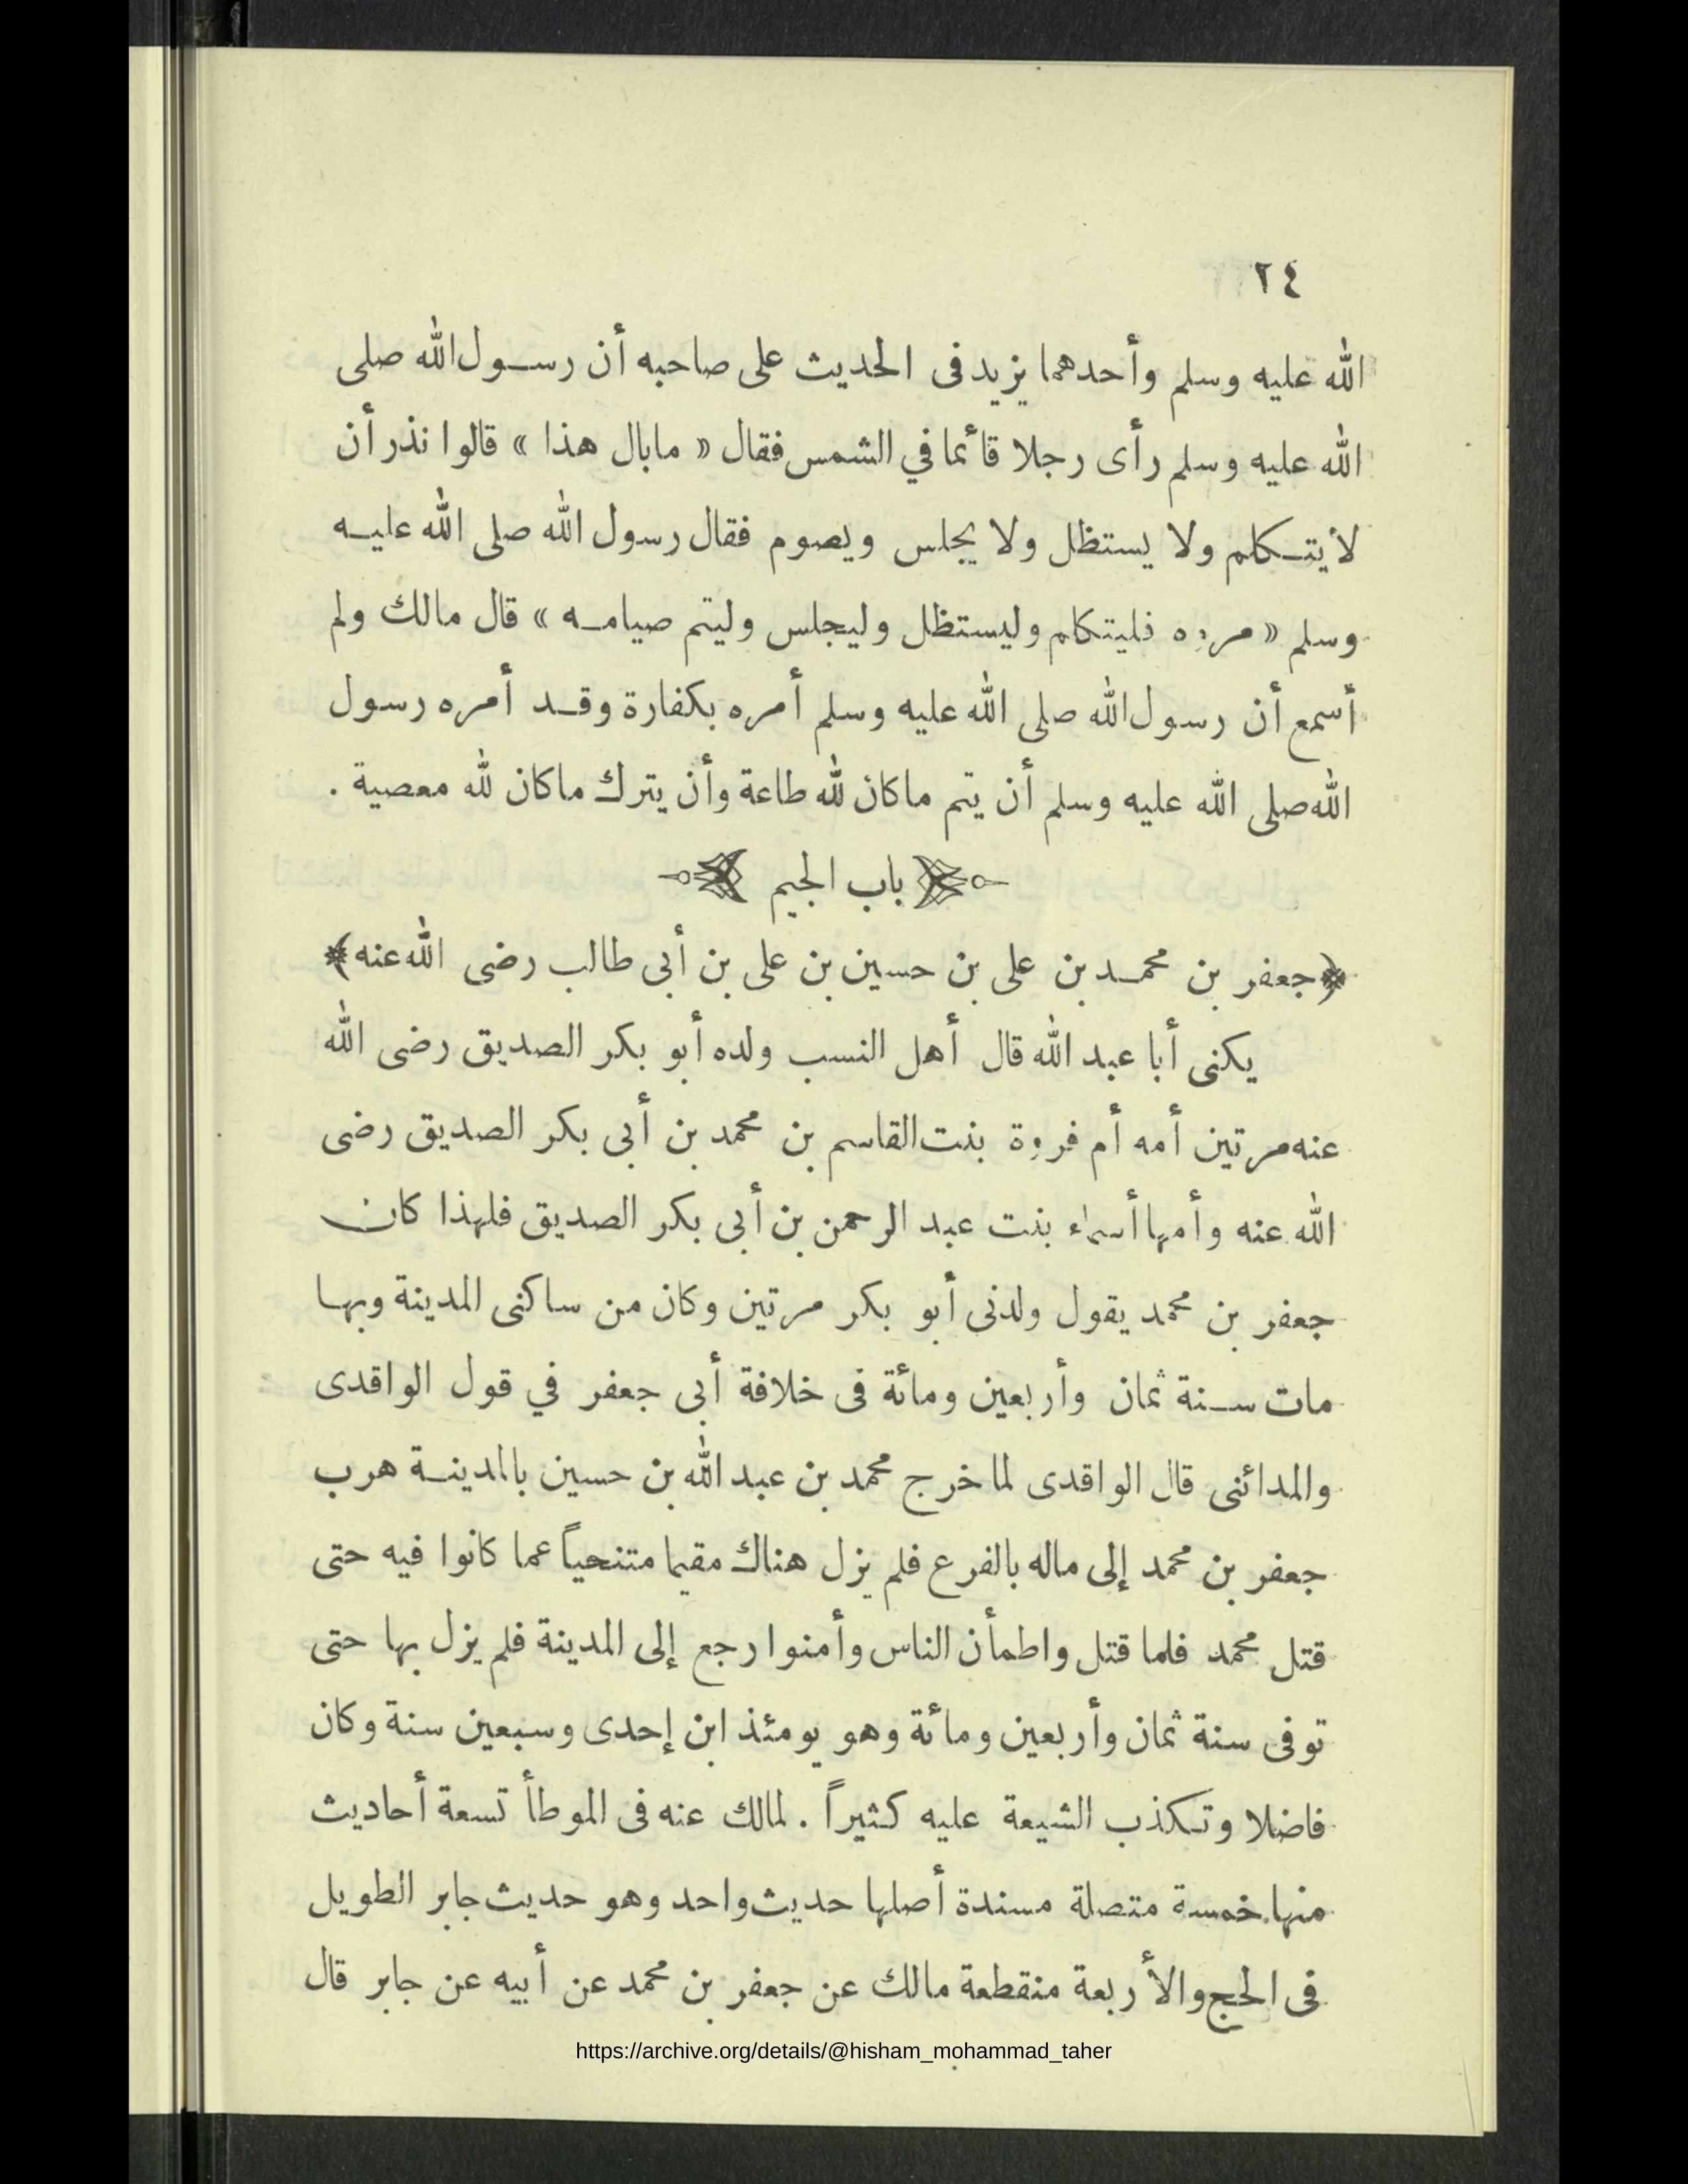 ٢٤
الله عليه وسلم وأحدهما يزيد فى الحديث على صاحبه أن رسول الله صلى
الله عليه وسلم رأى رجلا قائما في الشمس فقال « مابال هذا » قالوا نذر أن
لا يتكلم ولا يستظل ولا يجلس ويصوم فقال رسول الله صلى الله عليه
وسلم « مروه فليتكلم وليستظل وليجلس وليتم صيامه » قال مالك ولم
أسمع أن رسول الله صلى الله عليه وسلم أمره بكفارة وقد أمره رسول
الله صلى الله عليه وسلم أن يتم ماكان لله طاعة وأن يترك ماكان لله معصية .
باب الجيم
﴿جعفر بن محمد بن على بن حسين بن على بن أبى طالب رضى الله عنه﴾
يكنى أبا عبد الله قال أهل النسب ولده أبو بكر الصديق رضى الله
عنه مرتين أمه أم فروة بنت القاسم بن محمد بن أبى بكر الصديق رضى
الله عنه وأمها أسماء بنت عبد الرحمن بن أبى بكر الصديق فلهذا كان
جعفر بن محمد يقول ولدنى أبو بكر مرتين وكان من ساكنى المدينة وبها
مات سنة ثمان وأربعين ومائة فى خلافة أبى جعفر في قول الواقدى
والمدائنى قال الواقدى لما خرج محمد بن عبد الله بن حسين بالمدينة هرب
جعفر بن محمد إلى ماله بالفرع فلم يزل هناك مقيما متنحياً عما كانوا فيه حتى
قتل محمد فلما قتل واطمأن الناس وأمنوا رجع إلى المدينة فلم يزل بها حتى
توفى سنة ثمان وأربعين ومائة وهو يومئذ ابن إحدى وسبعين سنة وكان
فاضلا وتكذب الشيعة عليه كثيراً . لمالك عنه فى الموطأ تسعة أحاديث
منها خمسة متصلة مسندة أصلها حديث واحد وهو حديث جابر الطويل
فى الحج والأربعة منقطعة مالك عن جعفر بن محمد عن أبيه عن جابر قال
https://archive.org/details/@hisham_mohammad_taher